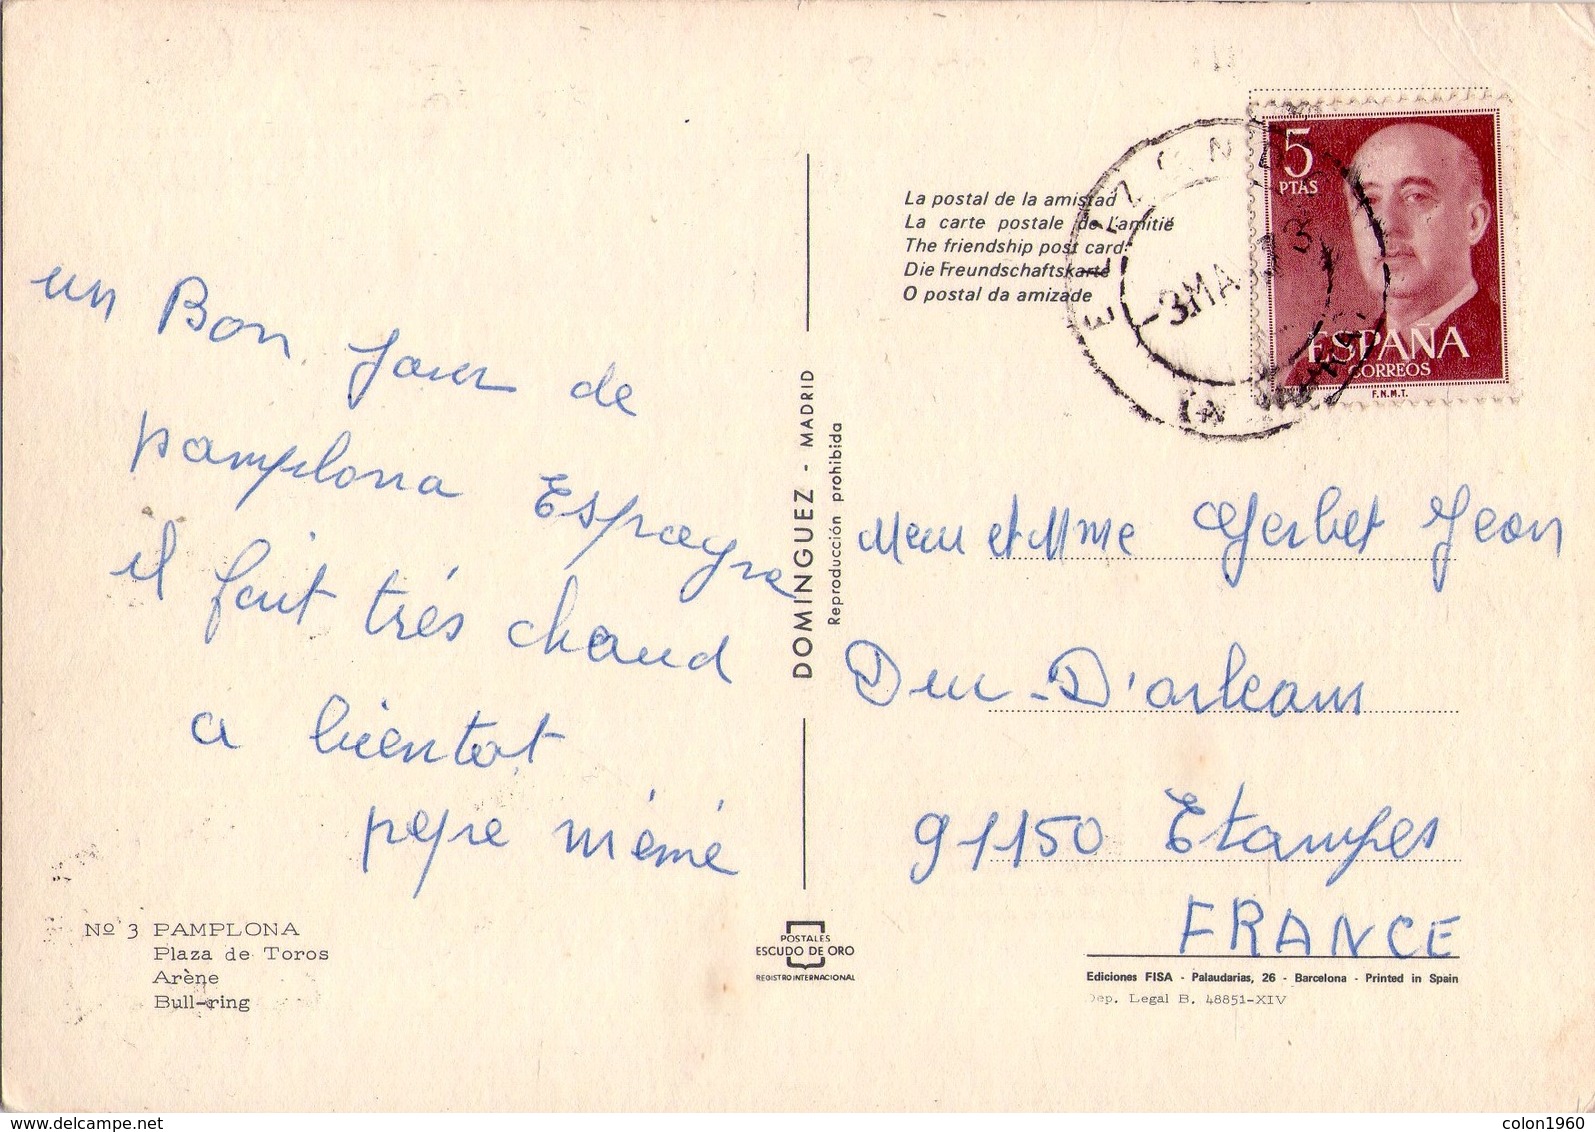 un Bon jour de
pamplona Espagne
il fait trés chaud
a bientot
pepe mémé
Nº 3 PAMPLONA
Plaza de Toros
Arène
Bull-ring
DOMINGUEZ - MADRID
Reproducción prohibida
POSTALES
ESCUDO DE ORO
REGISTRO INTERNACIONAL
La postal de la amistad
La carte postale de l'amitié
The friendship post card
Die Freundschaftskarte
O postal da amizade
ELIZONDO
-3 MA
5
PTAS
ESPAÑA
CORREOS
F.N.M.T.
et Mme Gerbet Jean
D'orleans
91150 Etampes
FRANCE
Ediciones FISA - Palaudarias, 26 - Barcelona - Printed in Spain
Dep. Legal B. 48851-XIV
www.delcampe.net
colon1960